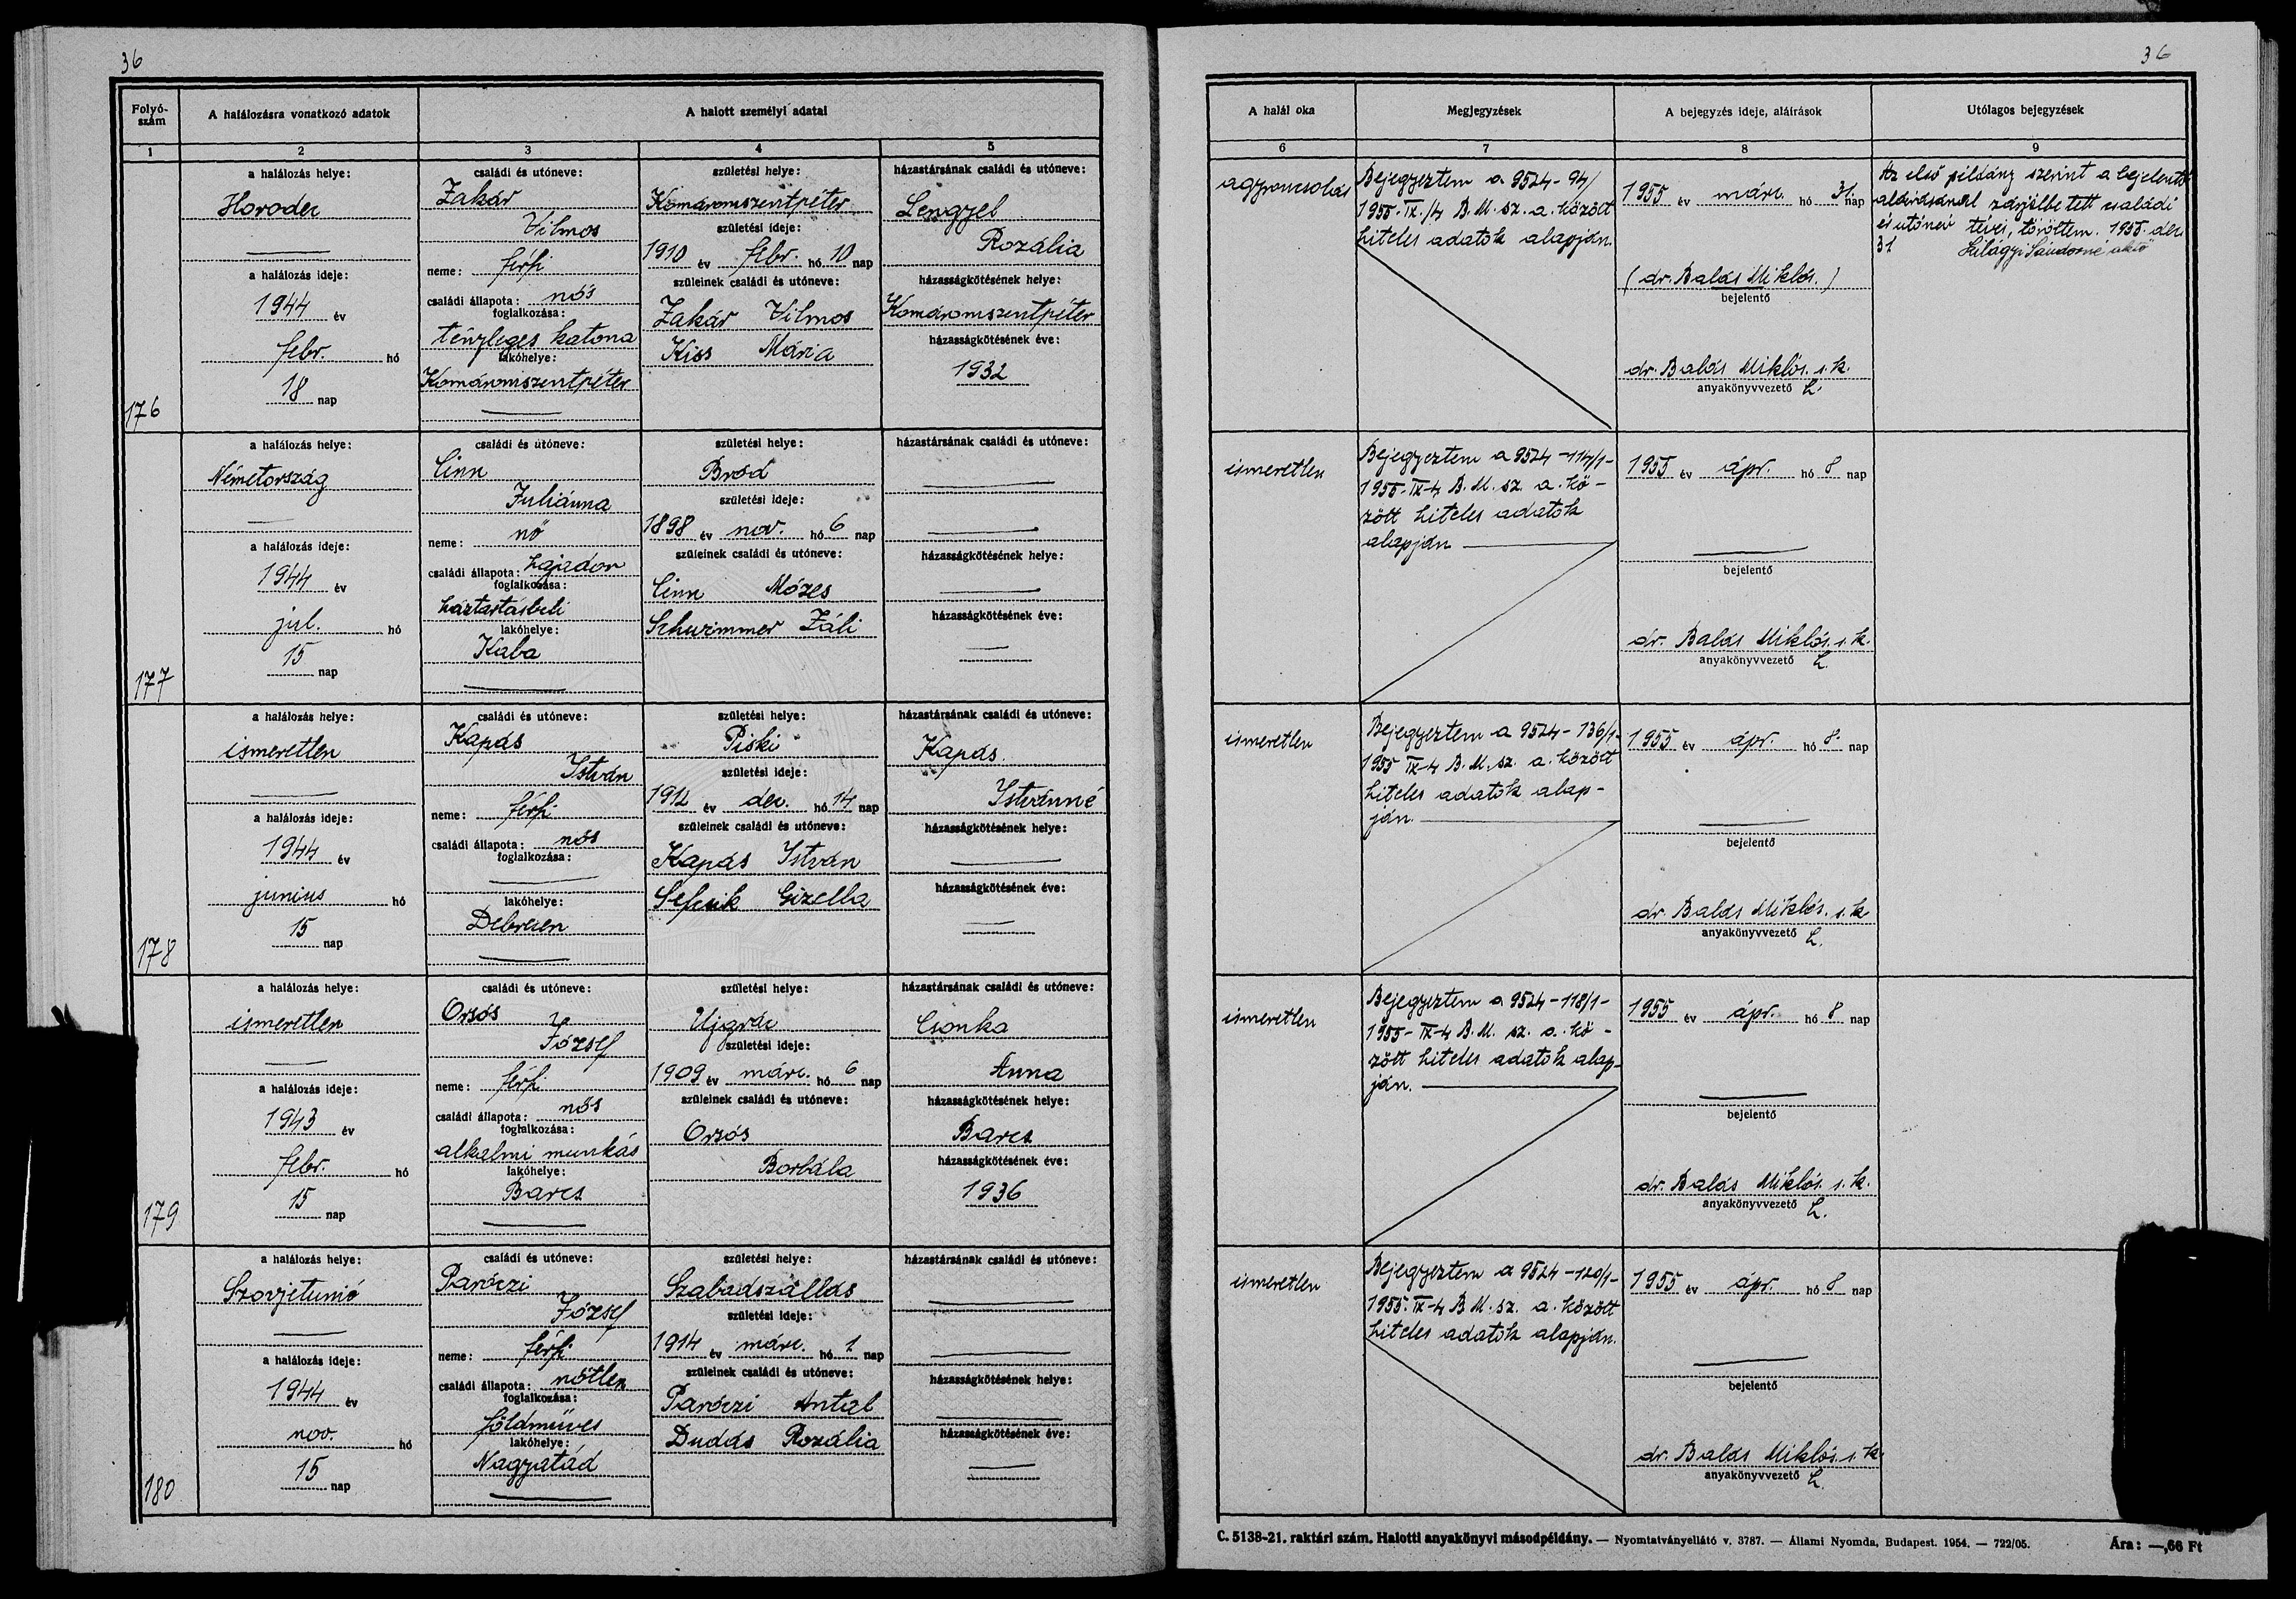 36
Folyó-szám
A halálozásra vonatkozó adatok
A halott személyi adatai
1
2
3
4
5
a halálozás helye:
Horodec
a halálozás ideje:
1944 év
febr. hó
18 nap
176
családi és utóneve:
Zakár
Vilmos
neme: férfi
családi állapota: nős
foglalkozása:
tényleges katona
lakóhelye:
Komáromszentpéter
születési helye:
Komáromszentpéter
születési ideje:
1910 év febr. hó 10 nap
szüleinek családi és utóneve:
Zakár Vilmos
Kiss Mária
házastársának családi és utóneve:
Lengyel
Rozália
házasságkötésének helye:
Komáromszentpéter
házasságkötésének éve:
1932
a halálozás helye:
Németország
a halálozás ideje:
1944 év
jul. hó
15 nap
177
családi és utóneve:
Cinn
Juliánna
neme: nő
családi állapota: hajadon
foglalkozása:
háztartásbeli
lakóhelye:
Kaba
születési helye:
Bród
születési ideje:
1898 év nov. hó 6 nap
szüleinek családi és utóneve:
Cinn Mózes
Schwimmer Záli
házastársának családi és utóneve:
házasságkötésének helye:
házasságkötésének éve:
a halálozás helye:
ismeretlen
a halálozás ideje:
1944 év
junius hó
15 nap
178
családi és utóneve:
Kapás
István
neme: férfi
családi állapota: nős
foglalkozása:
lakóhelye:
Debrecen
születési helye:
Piski
születési ideje:
1912 év dec. hó 14 nap
szüleinek családi és utóneve:
Kapás István
Gizella
házastársának családi és utóneve:
Kapás
Istvánné
házasságkötésének helye:
házasságkötésének éve:
a halálozás helye:
ismeretlen
a halálozás ideje:
1943 év
febr. hó
15 nap
179
családi és utóneve:
Orsós
József
neme: férfi
családi állapota: nős
foglalkozása:
alkalmi munkás
lakóhelye:
Barcs
születési helye:
Ujgrác
születési ideje:
1909 év márc. hó 6 nap
szüleinek családi és utóneve:
Orsós
Borbála
házastársának családi és utóneve:
Csonka
Anna
házasságkötésének helye:
Barcs
házasságkötésének éve:
1936
a halálozás helye:
Szovjetunió
a halálozás ideje:
1944 év
nov. hó
15 nap
180
családi és utóneve:
Paróczi
József
neme: férfi
családi állapota: nőtlen
foglalkozása:
földműves
lakóhelye:
Nagyatád
születési helye:
Szabadszállás
születési ideje:
1914 év márc. hó 1 nap
szüleinek családi és utóneve:
Paróczi Antal
Dudás Rozália
házastársának családi és utóneve:
házasságkötésének helye:
házasságkötésének éve:
36
A halál oka
Megjegyzések
A bejegyzés ideje, aláírások
Utólagos bejegyzések
6
7
8
9
agyroncsolás
Bejegyeztem a 9524-94/
1955.-IX./4 B.M. sz. a. között
hiteles adatok alapján.
1955 év márc. hó 31. nap
(dr. Balás Miklós.)
bejelentő
dr. Balás Miklós. s.k.
anyakönyvvezető h.
Az első példány szerint a bejelentő
aláirásánál zárjelbe tett családi
és utónév téves, töröltem. 1955. dec.
31 Szilágyi Sándorné
ismeretlen
Bejegyeztem a 9524-114/1-
1955-IX-4 B.M. sz. a. kö-
zött hiteles adatok
alapján
1955 év ápr. hó 8 nap
bejelentő
dr. Balás Miklós. s.k.
anyakönyvvezető h.
ismeretlen
Bejegyeztem a 9524-136/1-
1955 IX-4 B.M. sz. a. között
hiteles adatok alap-
ján.
1955 év ápr. hó 8. nap
bejelentő
dr. Balás Miklós. s.k
anyakönyvvezető h.
ismeretlen
Bejegyeztem a 9524-118/1-
1955-IX-4 B.M. sz. a. kö-
zött hiteles adatok alap-
ján.
1955 év ápr. hó 8 nap
bejelentő
dr. Balás Miklós. s.k.
anyakönyvvezető h.
ismeretlen
Bejegyeztem a 9524-120/1-
1955. IX-4 B.M. sz. a. között
hiteles adatok alapján.
1955 év ápr. hó 8 nap
bejelentő
dr. Balás Miklós. s.k.
anyakönyvvezető h.
C. 5138-21. raktári szám. Halotti anyakönyvi másodpéldány. — Nyomtatványellátó v. 3787. — Állami Nyomda, Budapest. 1954. — 722/05. Ára: —,66 Ft